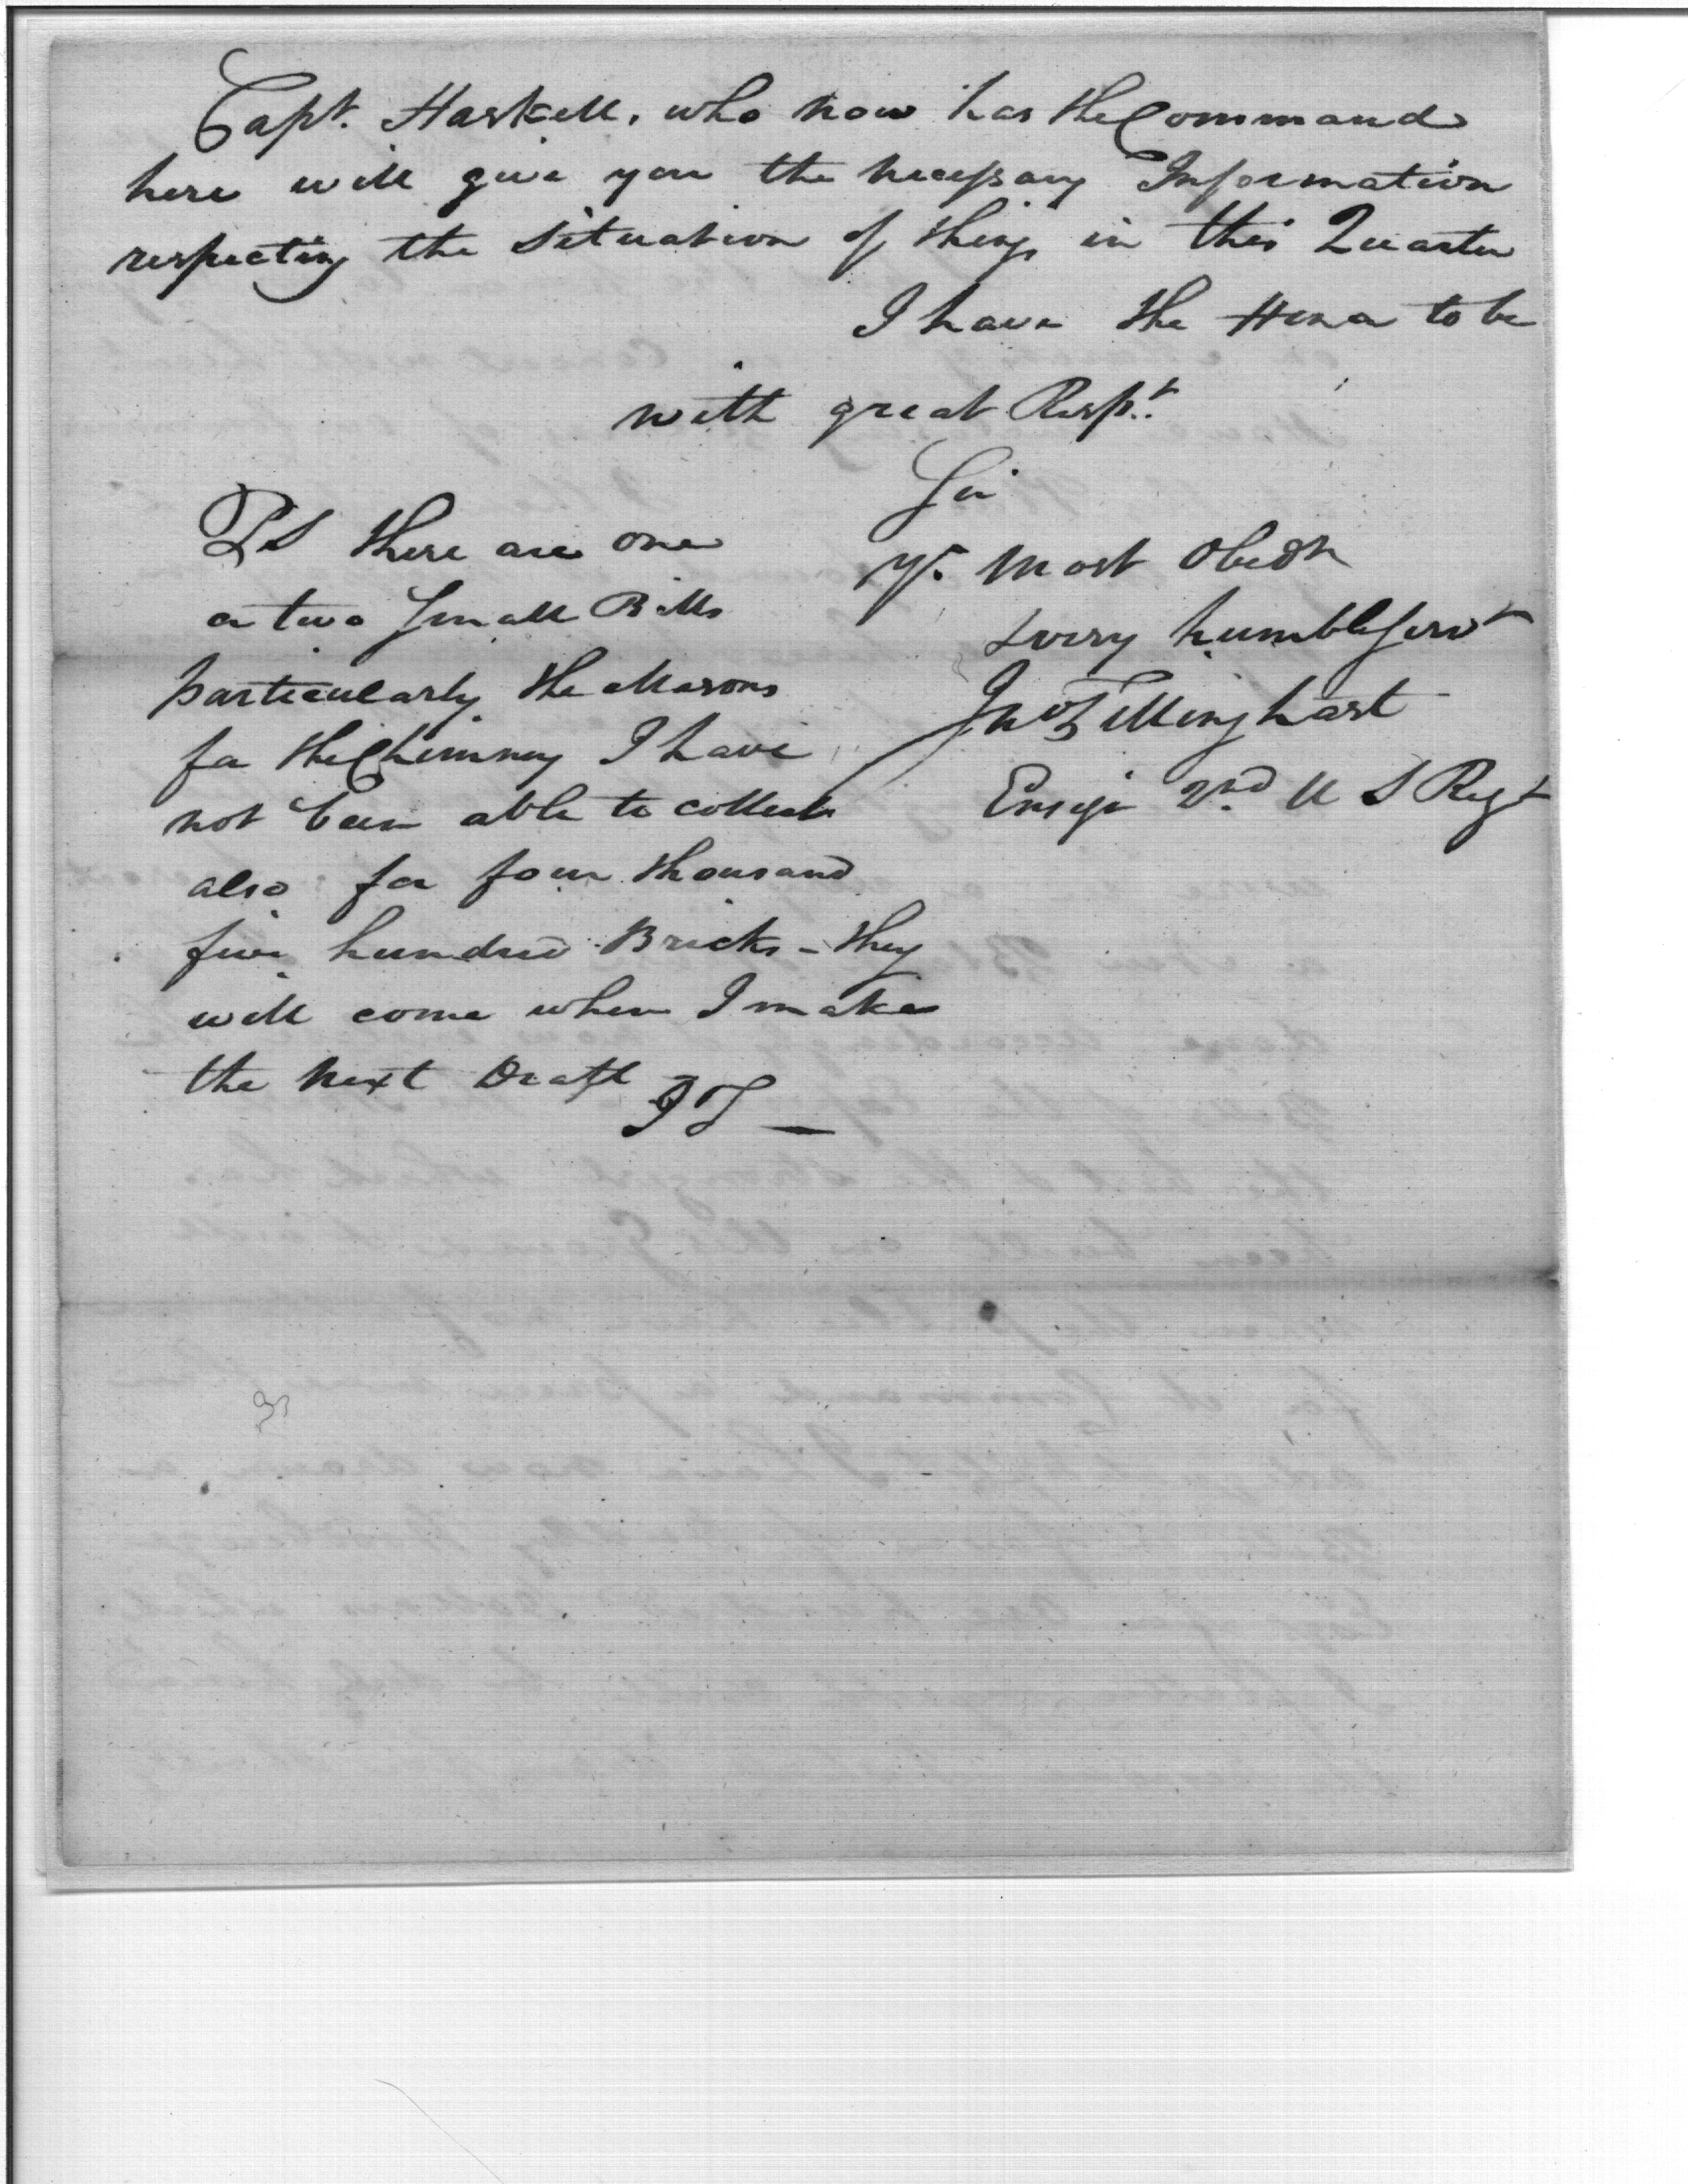 Capt. Haskell, who now has the Command
here will give you the necessary Information
respecting the Situation of things in this Quarter
I have the Honor to be
with great Respt.
Sir
Yr. most Obedt
& very humble Servt
Jno Tillinghast
Ensign 2nd U S Regt
PS there are one
or two Small Bills
particularly the Masons
for the Chimney I have
not been able to collect
also for four thousand
five hundred Bricks - they
will come when I make
the next Draft
JT —